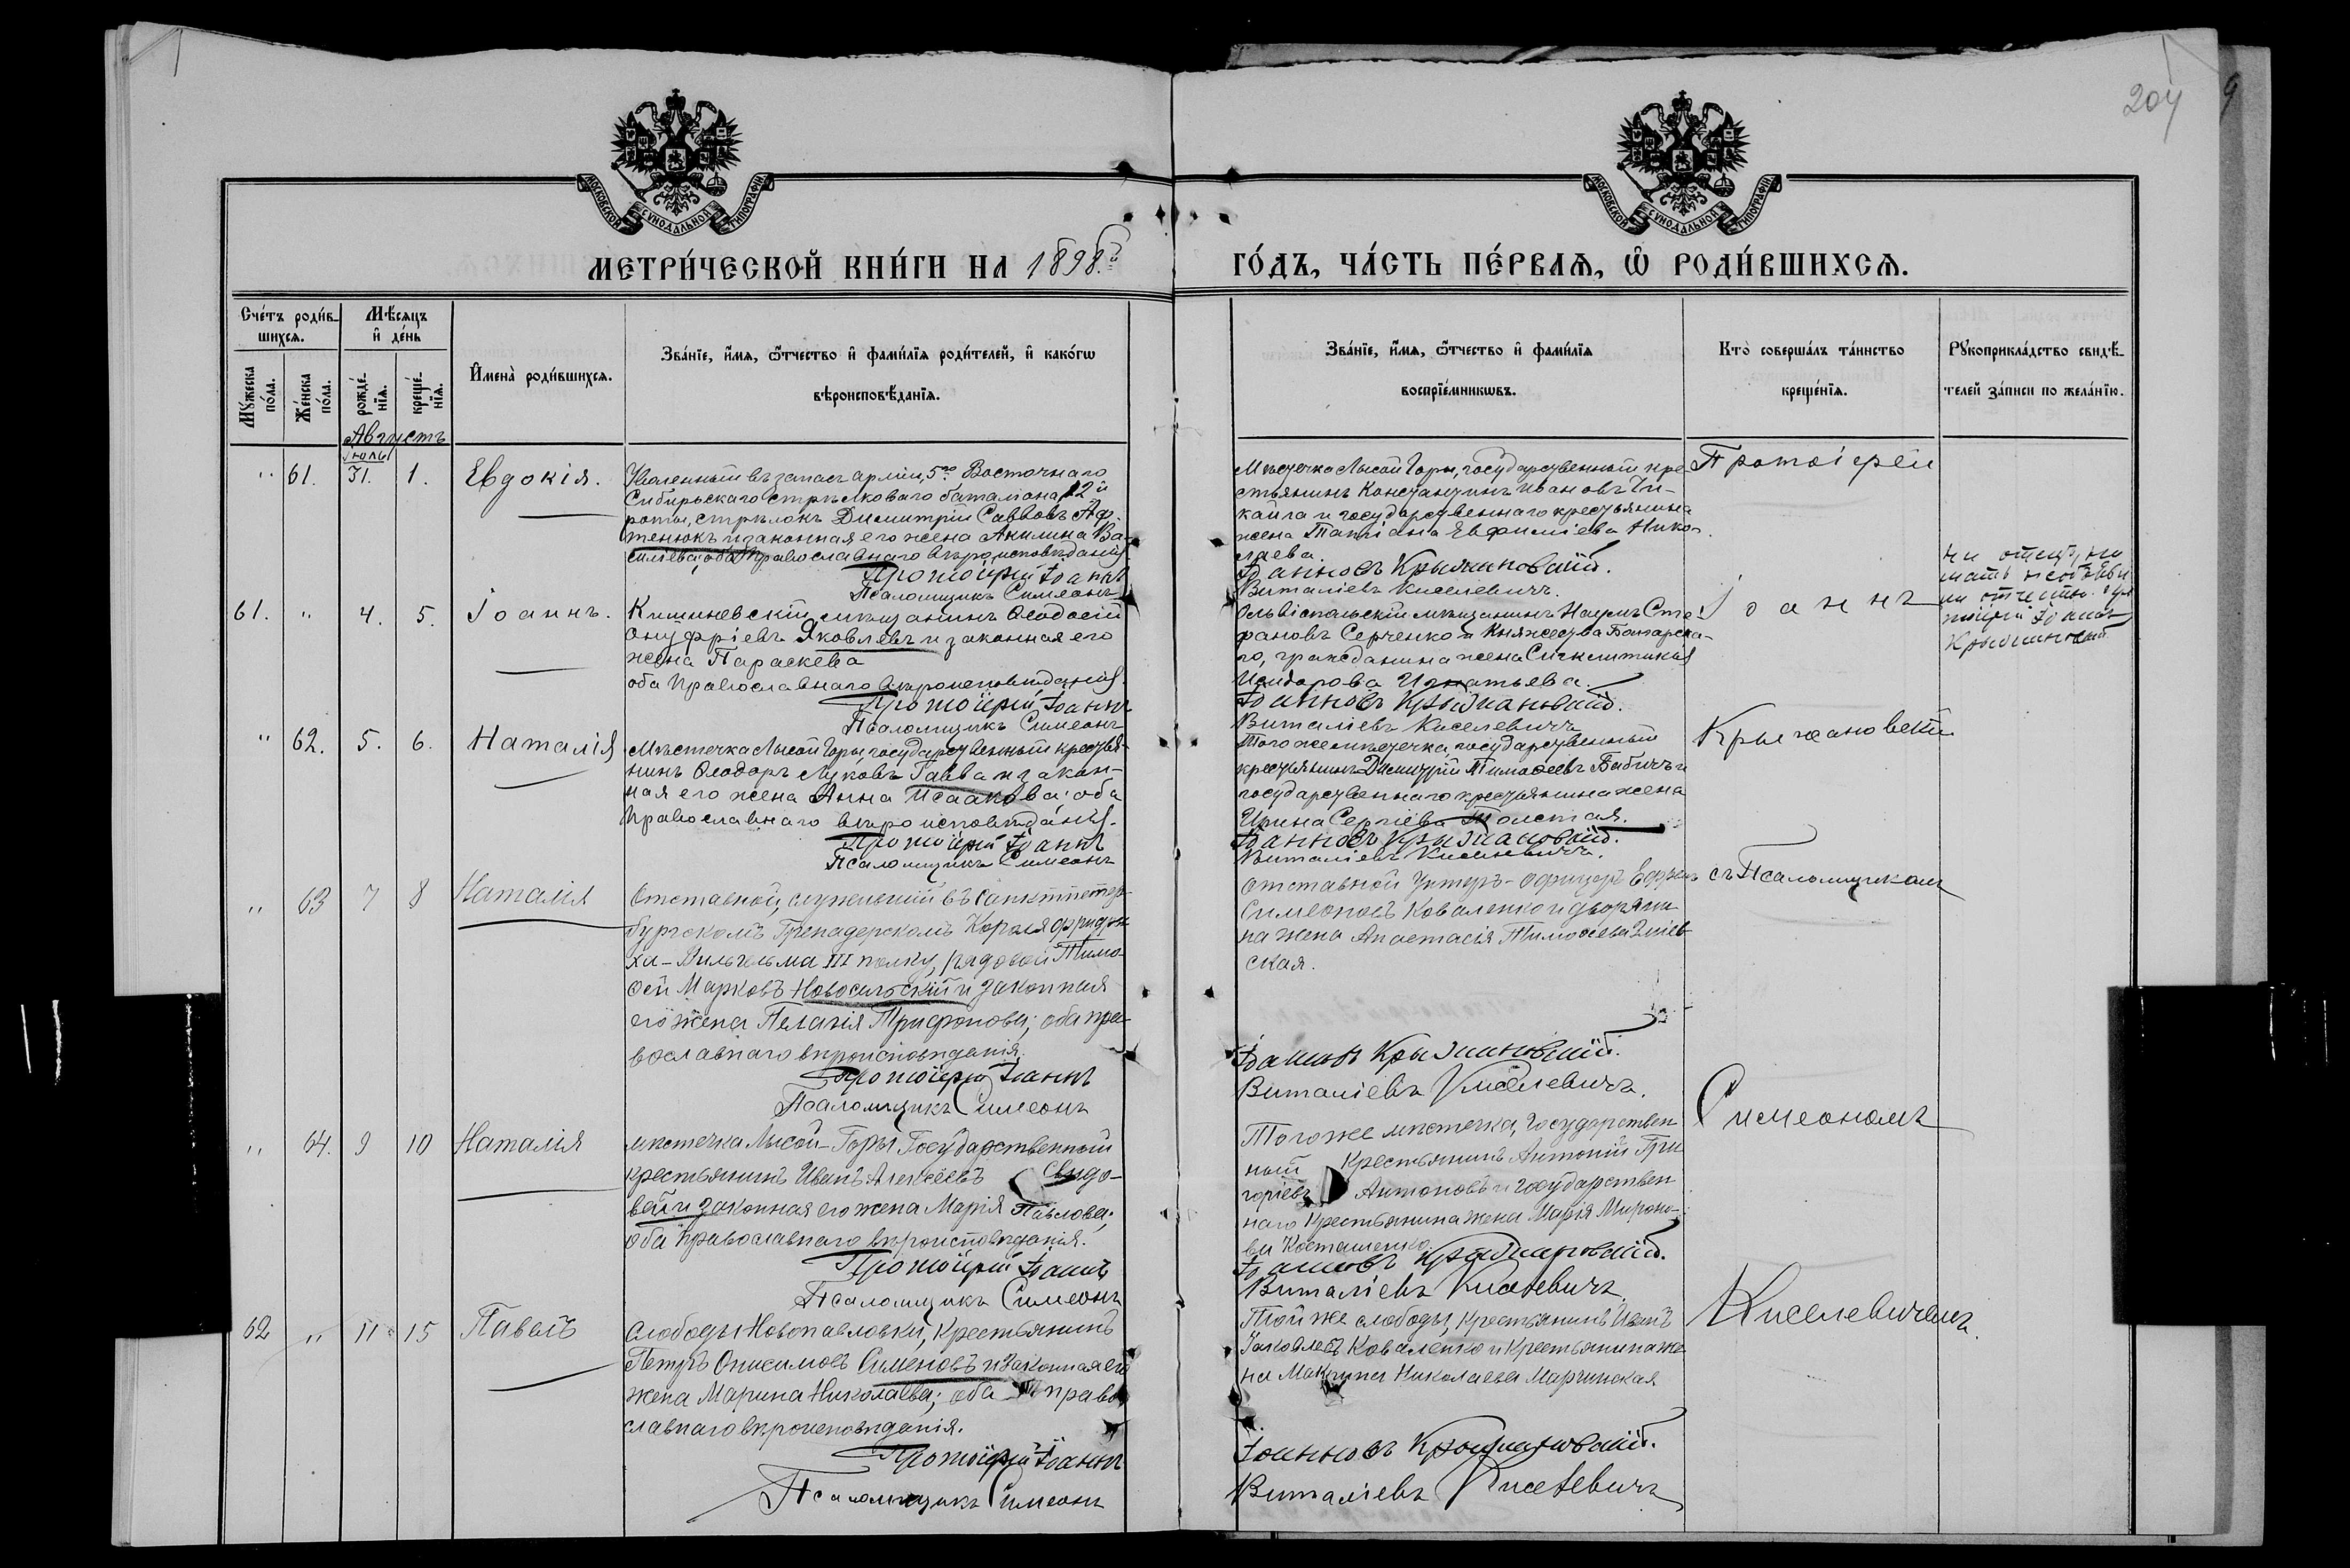 204
9
МОСКОВСКОЙ СѴНОДАЛЬНОЙ ТИПОГРАФІИ
МОСКОВСКОЙ СѴНОДАЛЬНОЙ ТИПОГРАФІИ
МЕТРИ́ЧЕСКОЙ КНИ́ГИ НА 1898й
ГО́ДЪ, ЧА́СТЬ ПЕ́РВАѦ, Ѡ҆ РОДИ́ВШИХСѦ.
Сче́тъ роди́в-
шихсѧ.
Мѣ́сѧцъ
и҆ де́нь
И҆мена̀ роди́вшихсѧ.
Зва́нїе, и҆́мѧ, ѻ҆́тчество и҆ фами́лїѧ роди́телей, и҆ како́гѡ
вѣроисповѣ́данїѧ.
Мꙋ́жеска по́ла.
Же́нска по́ла.
рожде́-нїѧ.
креще́-нїѧ.
Зва́нїе, и҆́мѧ, ѻ҆́тчество и҆ фами́лїѧ
воспрїе́мникѡвъ.
Кто̀ соверша́лъ та́инство
креще́нїѧ.
Рꙋкоприкла́дство свидѣ́-
телей за́писи по жела́нїю.
Августъ
Іюль
" 61. 31. 1. Евдокія.
Уволенный въ запасъ арміи, 5го Восточнаго
Сибирьскаго стрѣлковаго баталіона, 2й
роты, стрѣлокъ Димитрій Савовъ Аф-
тенюкъ и законная его жена Акилина Ва-
силіева; оба Православнаго вѣроисповѣданія.
Протоіерей Іоаннъ
Псаломщикъ Симеонъ
Мѣстечка Лысой Горы, государственный кре-
стьянинъ Константинъ Ивановъ Чи-
кайла и государственнаго крестьянина
жена Татіана Евфиміева Нико-
лаева.
Іоанновъ Крыжановскій.
Виталіевъ Киселевичъ.
Протоіерей
61. " 4. 5. Іоаннъ.
Кишиневскій мѣщанинъ Ѳеодосій
Онуфріевъ Яковлевъ и законная его
жена Параскева
оба Православнаго вѣроисповѣданія.
Протоіерей Іоаннъ
Псаломщикъ Симеонъ
Ольвіопольскій мѣщанинъ Наумъ Сте-
фановъ Серченко и Княжества Болгарска-
го, гражданина жена Синклитикія
Исидорова Игнатьева.
Іоанновъ Крыжановскій.
Виталіевъ Киселевичъ
Іоаннъ
ни отецъ, ни
мать
Крыжановскій
" 62. 5. 6. Наталія
Мѣстечка Лысой Горы, государственный крестья-
нинъ Ѳеодоръ Луковъ Гаева и закон-
ная его жена Анна Исаакова; оба
Православнаго вѣроисповѣданія.
Протоіерей Іоаннъ
Псаломщикъ Симеонъ
Того же мѣстечка, государственный
крестьянинъ Димитрій Тимоѳеевъ Бабичъ и
государственнаго крестьянина жена
Ирина Сергіева Толстая.
Іоанновъ Крыжановскій.
Виталіевъ Киселевичъ.
Крыжановскій
" 63 7 8 Наталія
Отставной, служившій въ Санктпетер-
бургскомъ Гренадерскомъ Короля Фридри-
ха-Вильгельма III полку, рядовой Тимо-
ѳей Марковъ Новосильскій и законная
его жена Пелагія Трифонова; оба пра-
вославнаго вѣроисповѣданія.
Протоіерей Іоаннъ
Псаломщикъ Симеонъ
Отставной Унтеръ-офицеръ Ефремъ
Симеоновъ Коваленко и дворяни-
на жена Анастасія Тимоѳеева
ская.
Іоанновъ Крыжановскій.
Виталіевъ Киселевичъ.
съ Псаломщикомъ
" 64. 9 10 Наталія
мѣстечка Лысой-Горы Государственный
крестьянинъ Иванъ Алексѣевъ Свидо-
вой и законная его жена Марія Павлова;
оба православнаго вѣроисповѣданія.
Протоіерей Іоаннъ
Псаломщикъ Симеонъ
Того же мѣстечка, Государствен
ный крестьянинъ Антоній Гри
горіевъ Антоновъ и государствен
наго крестьянина жена Марія Мироно-
ва Косташенко
Іоанновъ Крыжановскій.
Виталіевъ Киселевичъ.
Симеономъ
62 " 11 15 Павелъ
Слободы Новопавловки, Крестьянинъ
Петръ Онисимовъ Сименовъ и законная его
жена Марина Николаева; оба право
славнаго вѣроисповѣданія.
Протоіерей Іоаннъ
Псаломщикъ Симеонъ
Той же слободы, крестьянинъ Иванъ
Яковлевъ Коваленко и Крестьянина же
на Макрина Николаева Марчинская
Іоанновъ Крыжановскій.
Виталіевъ Киселевичъ
Киселевичемъ.